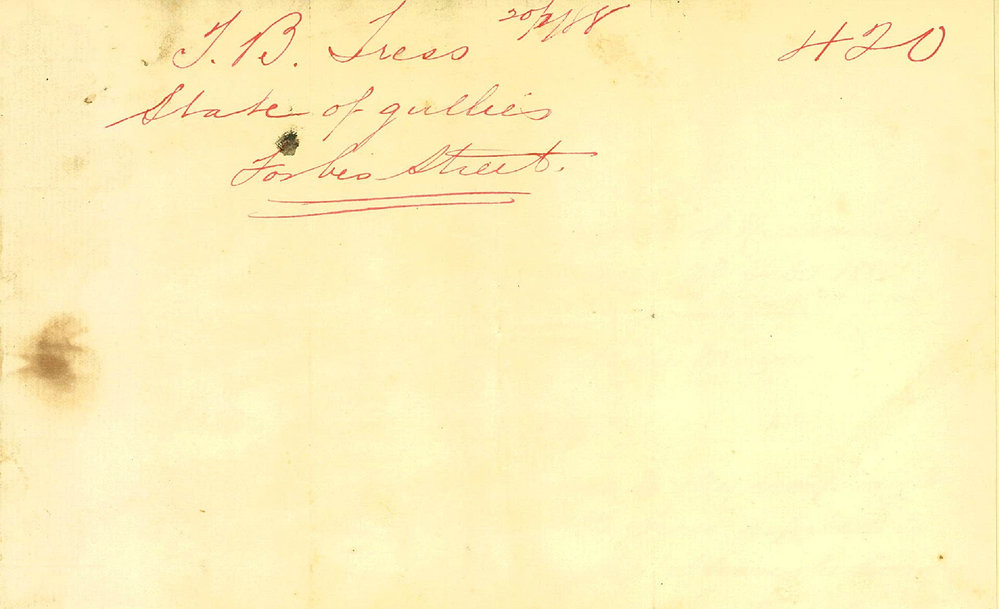 T. B. Tress 20/2/88 420
State of gullies
Forbes Street.